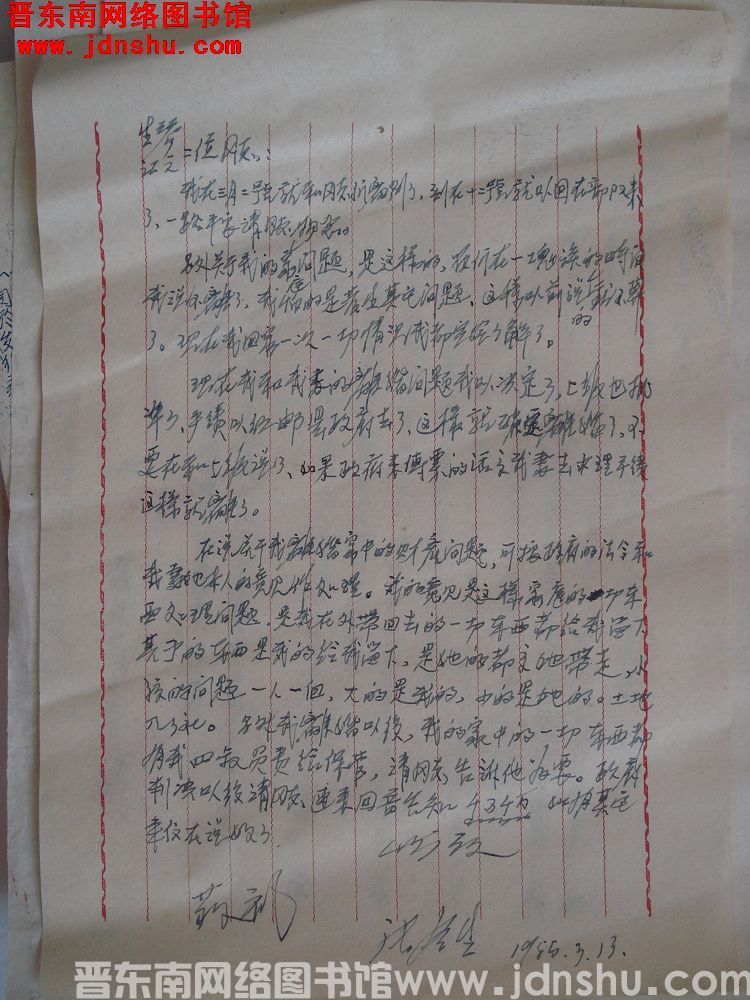 晋东南网络图书馆
www.jdnshu.com
二位同志：
我在三月二号就和同志们离别了，到在十二号就以回在部队来
了，一路平安请同志勿念。
另外关于我的家问题，是这样的，在们在一块谈的时间
我说不离了，我 的是 生其它问题，这样以前说 不算
的
了。现在我回家一次一切情况我都完全了解了。
现在我和我妻的离婚问题我以决定了，上级也批
准了，手续以经邮县政府去了，这样就 离婚了，不
要在和上级说了、如果政府来传票的话交我妻去办理手续
这样就离了。
在说关于我离婚家中的财产问题，可按政府的法令和
我妻她本人的意见作处理。我的意见是这样家庭的一切东
西处理问题，是我在外带回去的一切东西都给我留下
其于的东西是我的给我留下，是她的都交她带走，小
孩的问题一人一个，大的是我的，小的是她的。土地
。另外我离婚以后，我的家中的一切东西都
有我四叔负责给保管，请同志告诉他为要。政府
判决以后请同志速来回音告知 如有其它
事仪在说好了
此致
敬礼
张 生 1955.3.13.
晋东南网络图书馆www.jdnshu.com